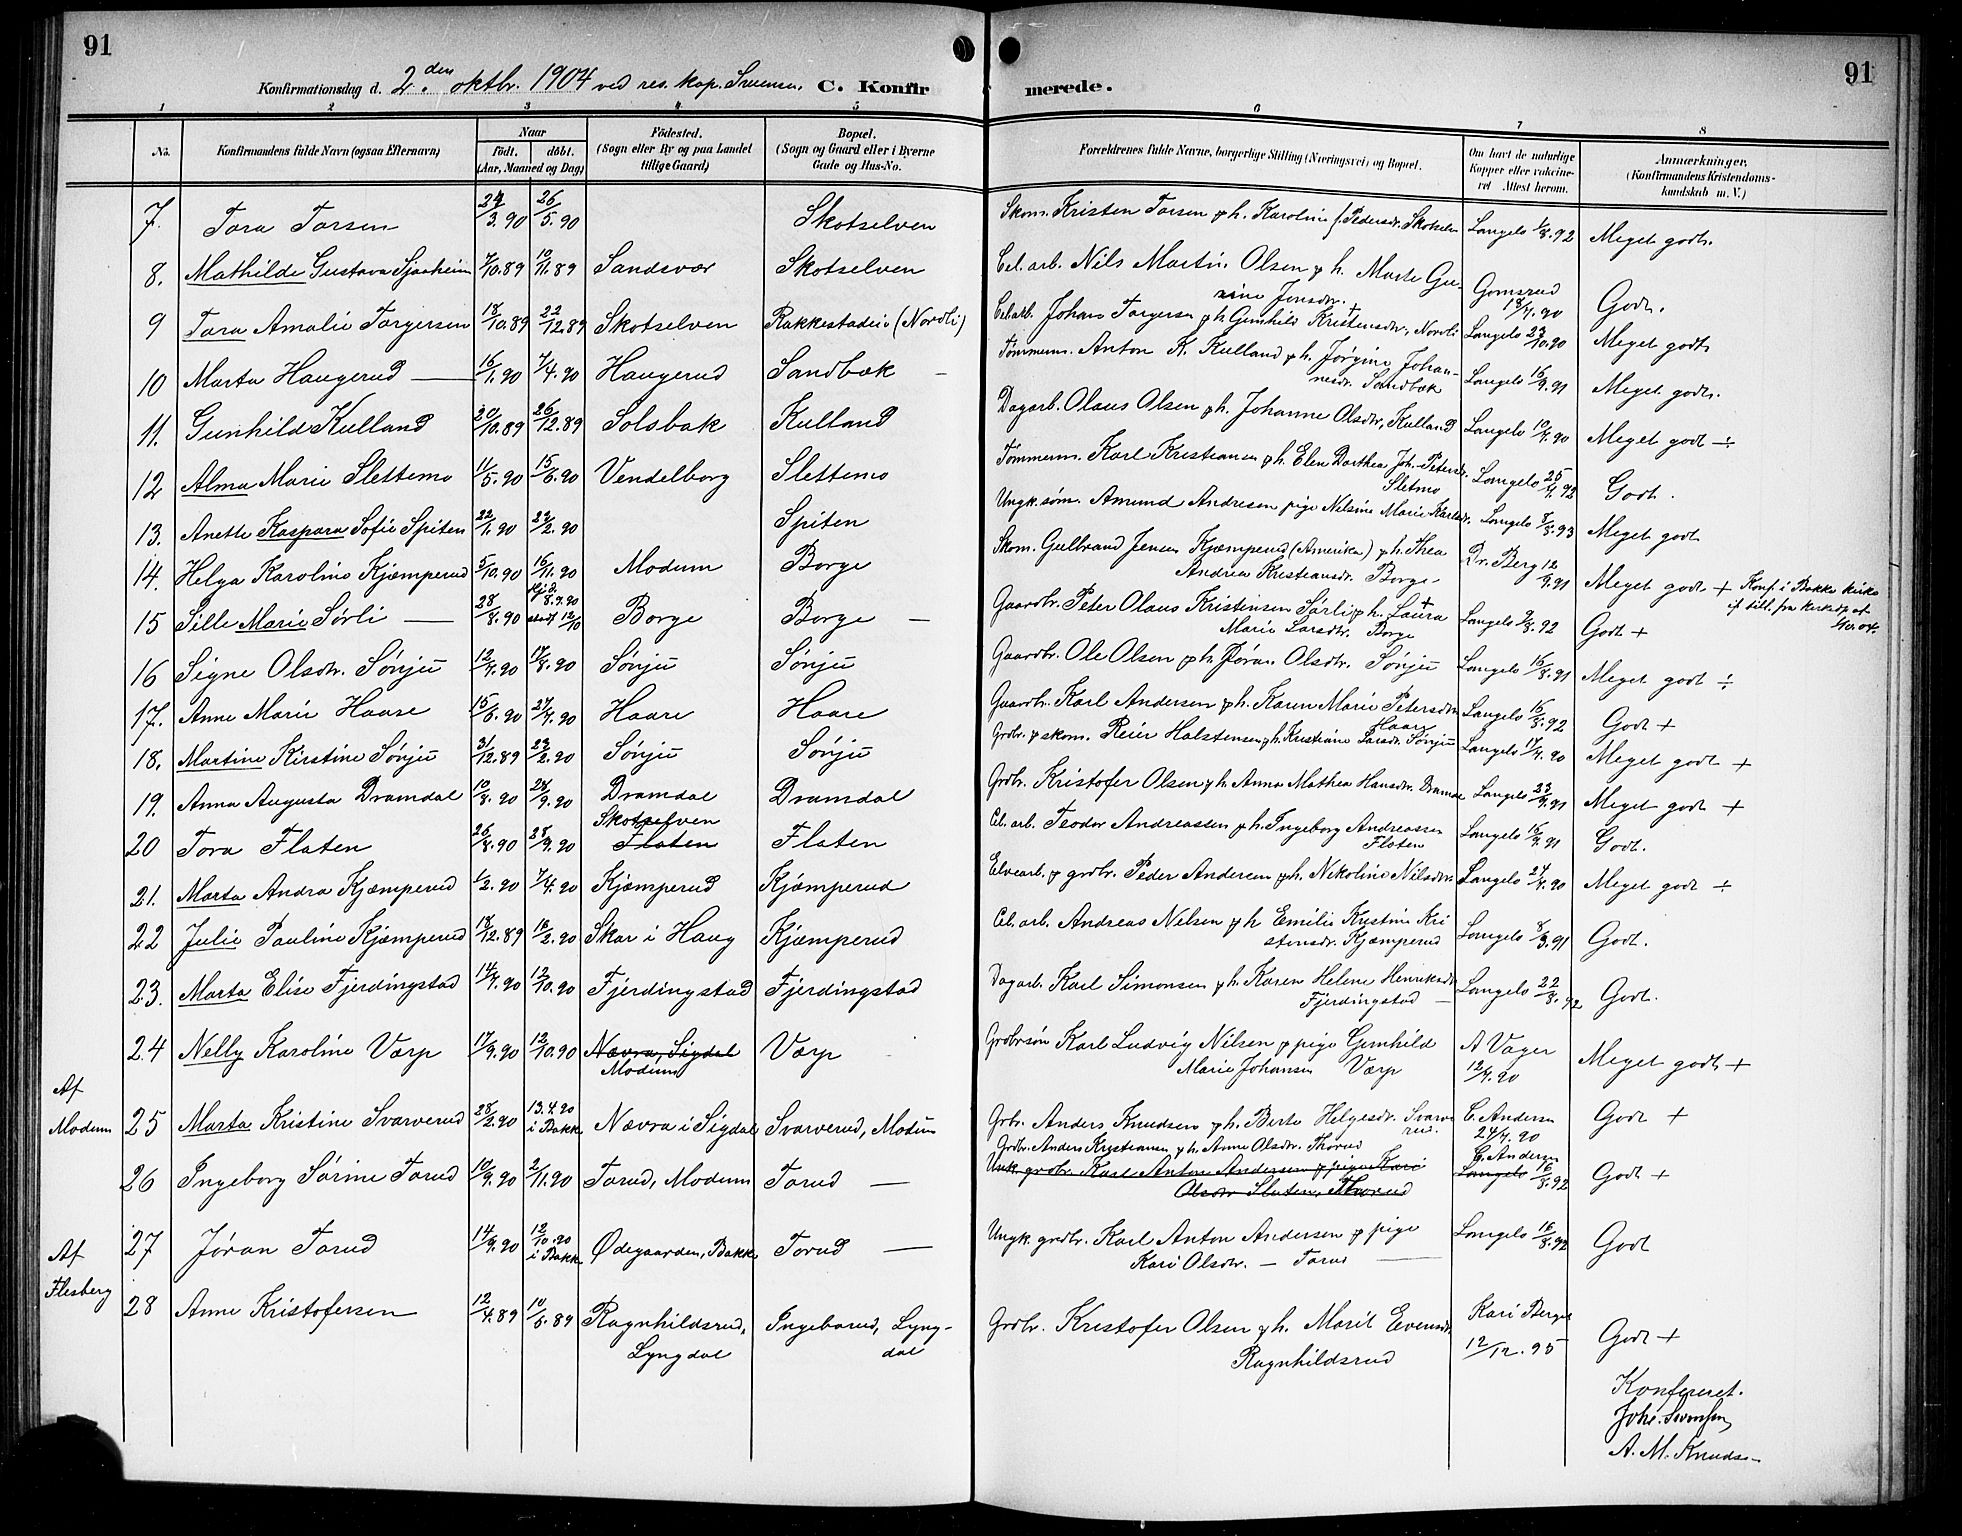 91
91
Konfirmationsdag d. 2.den oktbr. 1904 ved res. kap. Svensen. C. Konfir merede.
1 2 3 4 5 6 7 8
No. Konfirmandens fulde Navn (ogsaa Efternavn) Naar født. døbt. (Aar, Maaned og Dag) Fødested. (Sogn eller By og paa Landet tillige Gaard) Bopæl. (Sogn og Gaard eller i Byerne Gade og Hus-No. Forældrenes fulde Navne, borgerlige Stilling (Næringsvei) og Bopæl. Om havt de naturlige Kopper eller vaccineret Attest herom. Anmærkninger. (Konfirmandens Kristendomskundskab m. V.)
7. Tora Torsen 24/3.90 26/5.90 Skotselven Skom. Kristen Torsen & h. Karoline f. Pedersdr. Skotselv Langelo 1/8.92 Meget godt.
8. Mathilde Gustava Sjaaheim 7/10.89 10/11.89 Sandsvær Skotselven Cel. arb. Nils Martin Olsen & h. Marte Gusine Jensdr. Gomsrud 18/7.90 Godt.
9 Tora Amalie Torgersen 18/10.89 22/12.89 Skotselven Rakkestadeie (Nordli) Cel. arb. Johan Torgersen & h. Gunhild Kristensdr., Nordli Langelo 23/10.90 Meget godt
10 Marta Haugerud 16/1.90 7/4.90 Haugerud Sandbæk Tømmerm. Anton K. Kulland & h. Jørgine Johannesdr. Sandbæk Langelo 16/9.91 Meget godt.
11. Gunhild Kulland 20/10.89 26/12.89 Solsbak Kulland Dagarb. Olaus Olsen & h. Johanne Olsdtr., Kulland Langelo 10/7.90 Meget godt ÷
12 Alma Marie Slettemo 11/5.90 15/6.90 Vendelborg Slettemo Tømmerm. Karl Kristiansen & h. Elen Dorthea Joh. Petersdr. Sletmo Langelo 25/7.92 Godt.
13. Anette Kaspara Sofie Spiten 22/1.90 23/2.90 Spiten Ungk. søm. Amund Andresen pige Nelsine Marie Karlsdr. Langelo 7/8.93 Meget godt
14. Helga Karoline Kjæmperud 5/10.90 16/11.90 Modum Borge Skom. Gulbrand Jensen Kjæmperud (Amerika) & h. Thea Andrea Kristiansdr. Borge Dr. Berg 12/9.91 Meget godt + Konf. i Bakke kirke
15 Sille Marie Sørli 28/8.90 hjd. 8.9.90 stadf 12/10 Borge Borge Gaardbr. Peter Olaus Kristensen Sørli & h. Laura Marie Larsdtr. Borge Langelo 9/8.92 Godt +
16 Signe Olsdtr. Sønju 12/7.90 17/8.90 Sønju Sønju Gaardbr. Ole Olsen & h. Jøran Olsdtr. Sønju Langelo 16/8.91 Meget godt ÷
17. Anne Marie Haare 15/6.90 27/7.90 Haare Haare Gaardbr. Karl Andersen & h. Karen Marie Petersdtr. Haare Langelo 16/8.92 Godt +
18. Martine Kirstine Sønju 31/12.89 23/2.90 Sønju Sønju Grdbr. & skom. Reier Halstensen & h. Kristiane Larsdr. Sønju Langelo 17/7.90 Meget godt +
19. Anna Augusta Dramdal 10/8.90 28/9.90 Dramdal Dramdal Grdbr. Kristofer Olsen & h. Anna Mathea Hansdtr. Dramdal Langelo 23/9.91 Meget godt +
20 Tora Flaten 26/8.90 28/9.90 Skotselven Flaten Flaten Cel. arb. Teodor Andreassen & h. Ingeborg Andreassen Flaten Langelo 16/9.91 Godt.
21. Marta Andra Kjæmperud 1/2.90 7/4.90 Kjæmperud Kjæmperud Elvearb. & grdbr. Peder Andersen & h. Nikoline Nilsdtr. Langelo 24/7.90 Meget godt +
22 Julie Pauline Kjæmperud 18/12.89 16/2.90 Skar i Haug Kjæmperud Cel. arb. Andreas Nelsen & h. Emilie Kristine Kristensdr. Kjæmperud Langelo 8/9.91 Godt.
23. Marta Elise Fjerdingstad 14/7.90 12/10.90 Fjerdingstad Fjerdingstad Dagarb. Karl Simonsen & h. Karen Helene Henriksdtr. Fjerdingstad Langelo 22/8.92 Godt.
24 Nelly Karoline Værp 17/9.90 12/10.90 Nævra, Sigdal Modum Værp Grdbrsøn Karl Ludvig Nilsen & pige Gunhild Marie Johansen Værp A Vager 12/7.90 Meget godt +
Af
Modum 25 Marta Kristine Svarverud 28/2.90 13.4.90 i Bakke Nævra i Sigdal Svarverud, Modum Grbr. Anders Knudsen & h. Berte Helgesdr. Svarverud. C. Andersen 24/7.90 Godt +
26 Ingeborg Sørine Torud 10/9.90 2/11.90 Torud, Modum Torud Grdbr. Anders Kristiansen & h. Anne Olsdtr. Thorud
Unk. grdbr. Karl Anton Andersen & pige Kari Olsdtr. Sluten, Thorud C. Andersen Langelo 16/8.92 Godt +
27 Jøran Torud 14/9.90 12/10.90 i Bakke Ødegaarden, Bakke Torud Ungk. grdbr. Karl Anton Andersen & pige Kari Olsdtr. — Torud Langelo 16/8.92 Godt
Af
Flesberg 28 Anne Kristofersen 12/4.89 10/6.89 Ragnhildsrud, Lyngdal Ingebarud, Lyngdal Grdbr. Kristofer Olsen & h. Marit Evensdtr. Ragnhildsrud Kari Berget 12/12.95 Godt +
Konfereret.
Johs. Svensen
A. M. Knuds